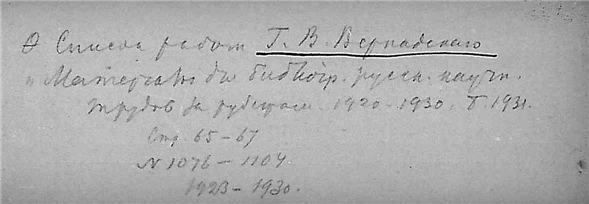 Список работ Г. В. Вернадского
"Материалы для библиогр. русск. научн.
трудов за рубежом. 1920-1930. Б. 1931.
Стр. 65-67
N 1076-1104
1923-1930.